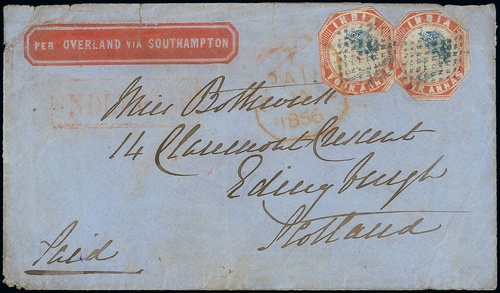 PER OVERLAND VIA SOUTHAMPTON
INDIA
FOUR ANNAS
INDIA
FOUR ANNAS
PAID
1856
Miss Bothwick
14 Claremont Crescent
Edinburgh
Scotland
Paid